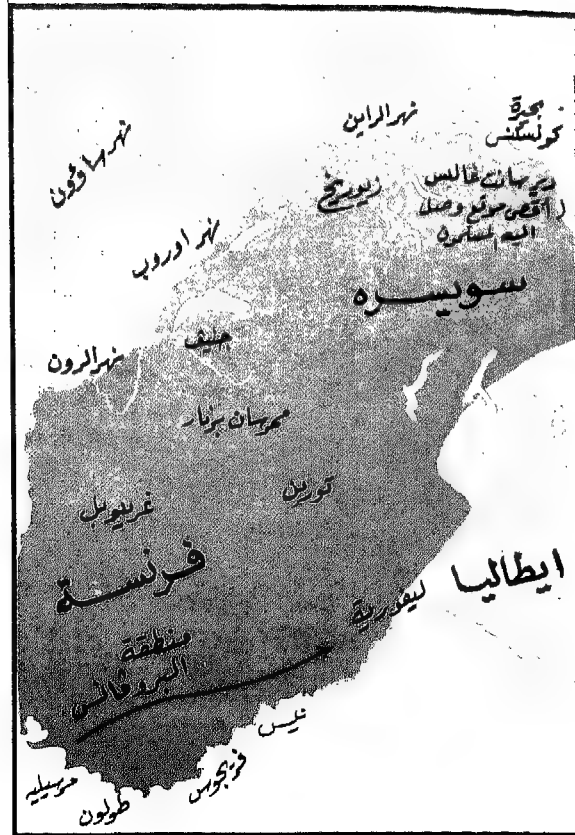 بحيرة
كونسكنس
نهر الراين
نهر ساؤون
دير سان غالس
اقصى موقع وصل
اليه المسلمون
زيوريخ
نهر اوروب
سويسره
جنيف
نهر الرون
ممر سان برنار
تورين
غرينوبل
فرنسة
ايطاليا
ليغورية
منطقة
البروفانس
نيس
فريجوس
طولون
مرسيليه